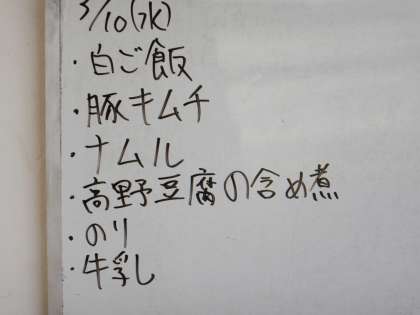 3/10(水)
・白ご飯
・豚キムチ
・ナムル
・高野豆腐の含め煮
・のり
・牛乳し